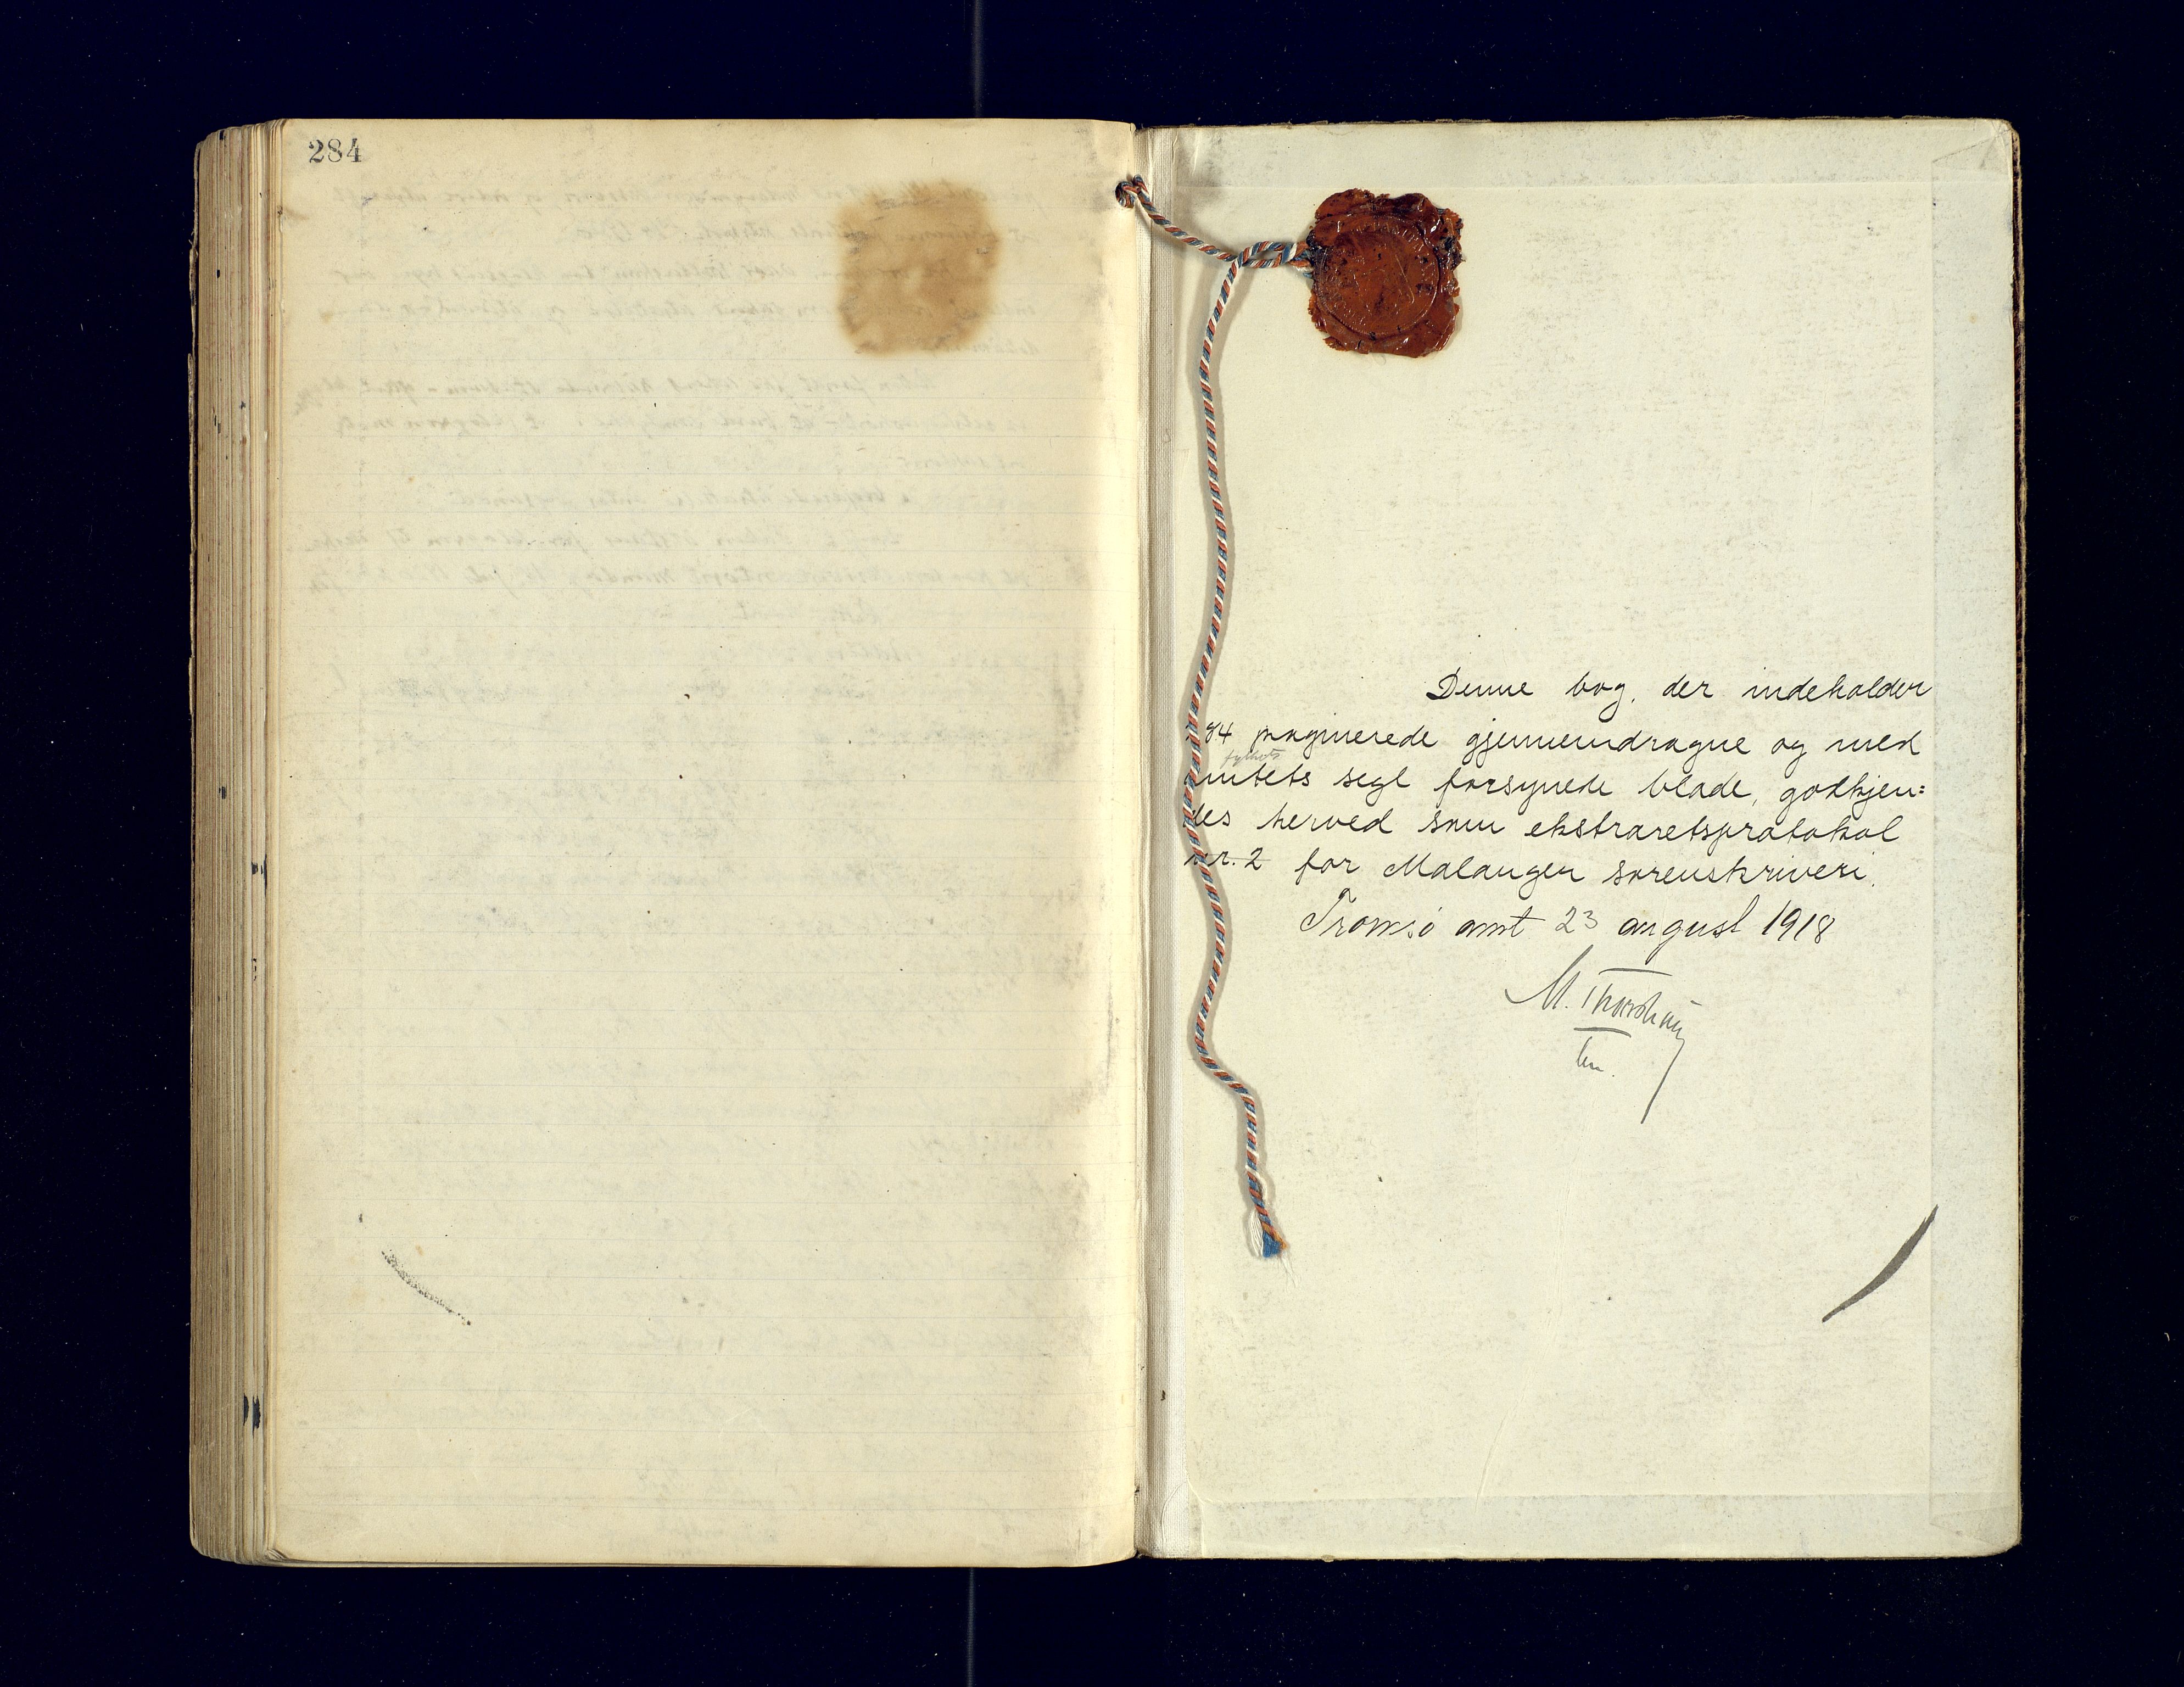 284
Denne bog, der indeholder
284 paginerede gjennemdragne og med
fylkets
amtets segl forsynede blade, godkjen=
des herved som ekstraretsprotokol
nr. 2 for Malangen sorenskriveri.
Tromsø amt 23 august 1918
M.